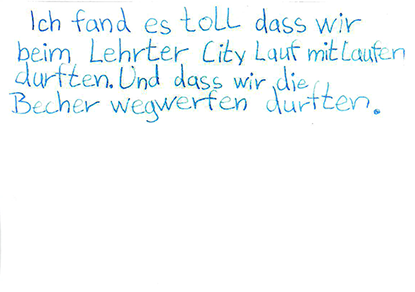 Ich fand es toll dass wir
beim Lehrter City Lauf mitlaufen
durften. Und dass wir die
Becher wegwerfen durften.